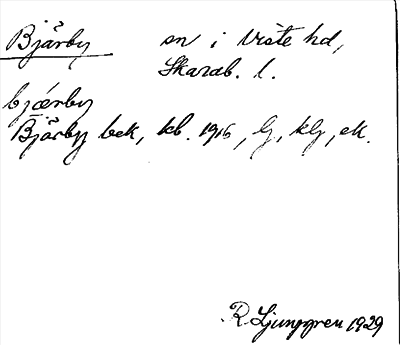 Bjärby sn i Viste hd,
Skarab. l.
bjǽrby
Bjärby bek, kb. 1916, lj, klj, ek.
R. Ljunggren 1929